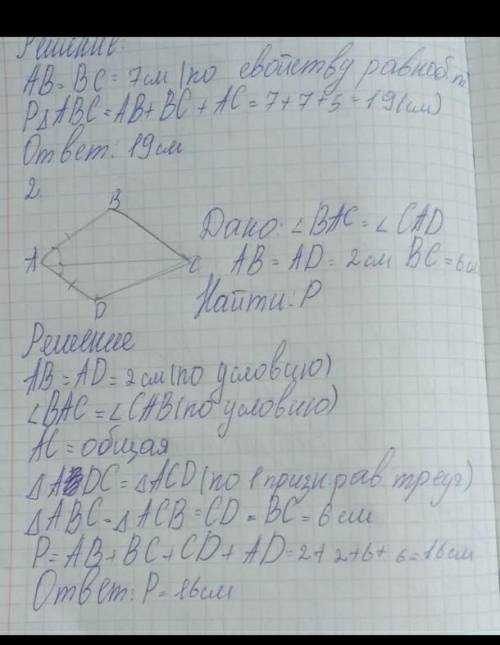 Решение:
AB = BC = 7см (по свойству равноб.
P△ABC = AB + BC + AC = 7 + 7 + 5 = 19(см)
Ответ: 19см
2.
B
A
C
D
Дано: ∠BAC = ∠CAD
AB = AD = 2см BC = 6см
Найти: P
Решение
AB = AD = 2см (по условию)
∠BAC = ∠CAB (по условию)
AC = общая
△ADC = △ACD (по 1 призн. рав. треуг)
△ABC = △ACB = CD = BC = 6см
P = AB + BC + CD + AD = 2 + 2 + 6 + 6 = 16см
Ответ: P = 16см